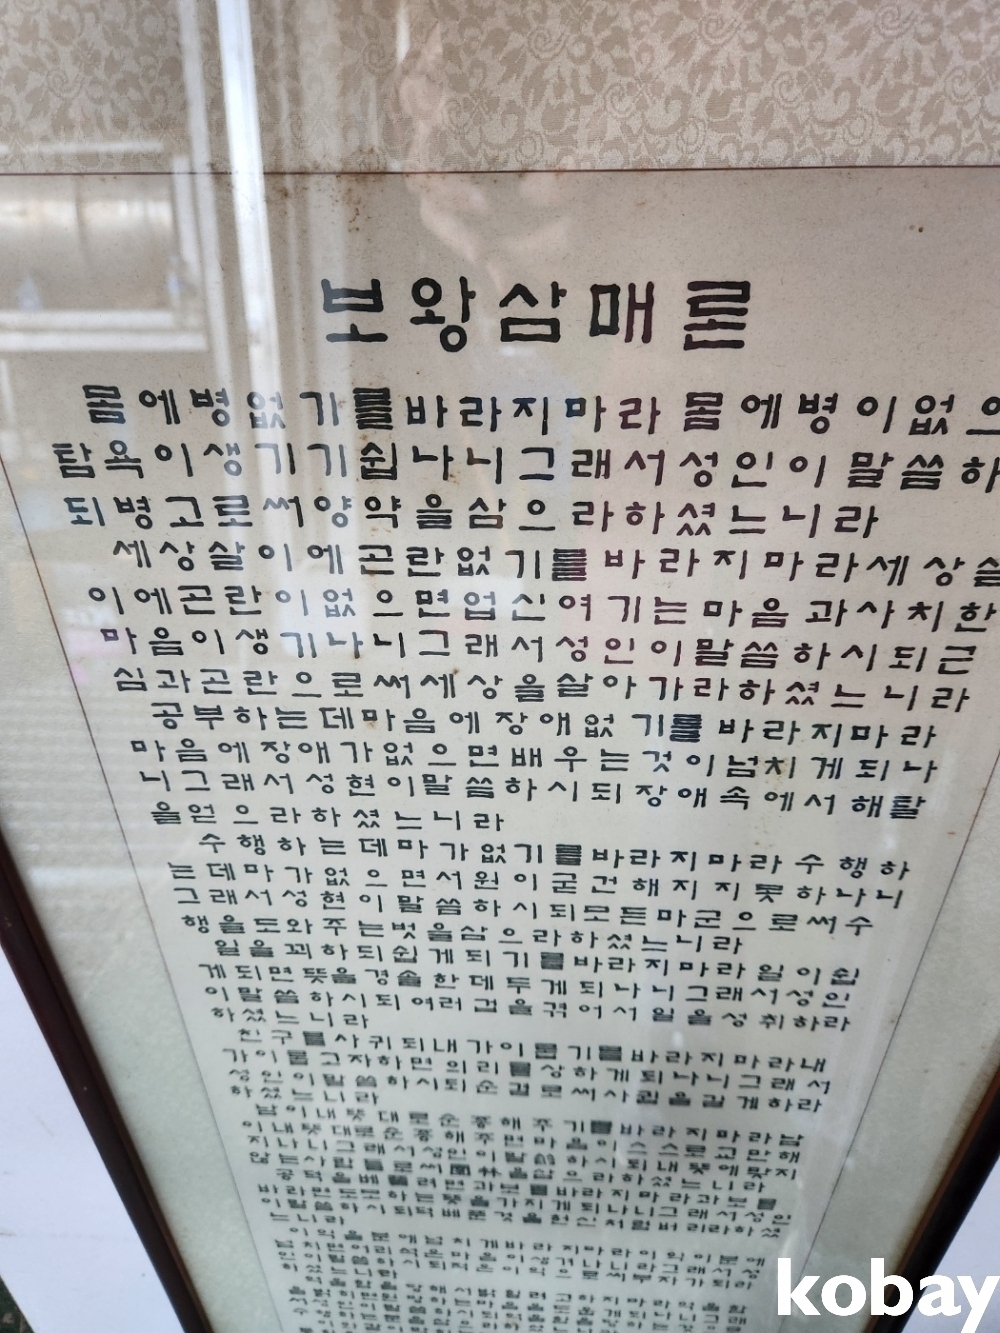 보왕삼매론
몸에병없기를바라지마라 몸에병이없으
탐욕이생기기쉽나니그래서성인이 말씀하
되병고로써양약을삼으라하셨느니라
세상살이에곤란없기를바라지마라세상살
이에곤란이없으면업신여기는마음과사치한
마음이생기나니그래서성인이말씀하시되근
심과곤란으로써세상을살아가라하셨느니라
공부하는데마음에장애없기를바라지마라
마음에장애가없으면배우는것이넘치게되나
니그래서성현이말씀하시되장애속에서해탈
을얻으라하셨느니라
수행하는데마가없기를바라지마라수행하
는데마가없으면서원이굳건해지지못하나니
그래서성현이말씀하시되모든마군으로써수
행을도와주는벗을삼으라하셨느니라
일을꾀하되쉽게되기를바라지마라일이쉽
게되면뜻을경솔한데두게되나니그래서성인
이말씀하시되여러겁을겪어서일을성취하라
하셨느니라
친구를사귀되내가이롭기를바라지마라내
가이롭고자하면의리를상하게되나니그래서
성인이말씀하시되순결로써사귐을길게하라
하셨느니라
남이내뜻대로순종해주기를바라지마라남
이내뜻대로순종해주면마음이스스로교만해
지나니그래서성인이말씀하시되내뜻에맞지
않는사람들로써園林을삼으라하셨느니라
공덕을베풀려면과보를바라지마라과보를
바라면도모하는뜻을가지게되나니그래서성인
이말씀하시되덕베푼것을헌신처럼버리라하셨
느니라
이익을분에넘치게바라지마라이익이분에
넘치면어리석은마음이생기나니그래서성
인이말씀하시되적은이익으로써부자가되라
하셨느니라
억울함을당해서밝히려고하지마라억울함
kobay